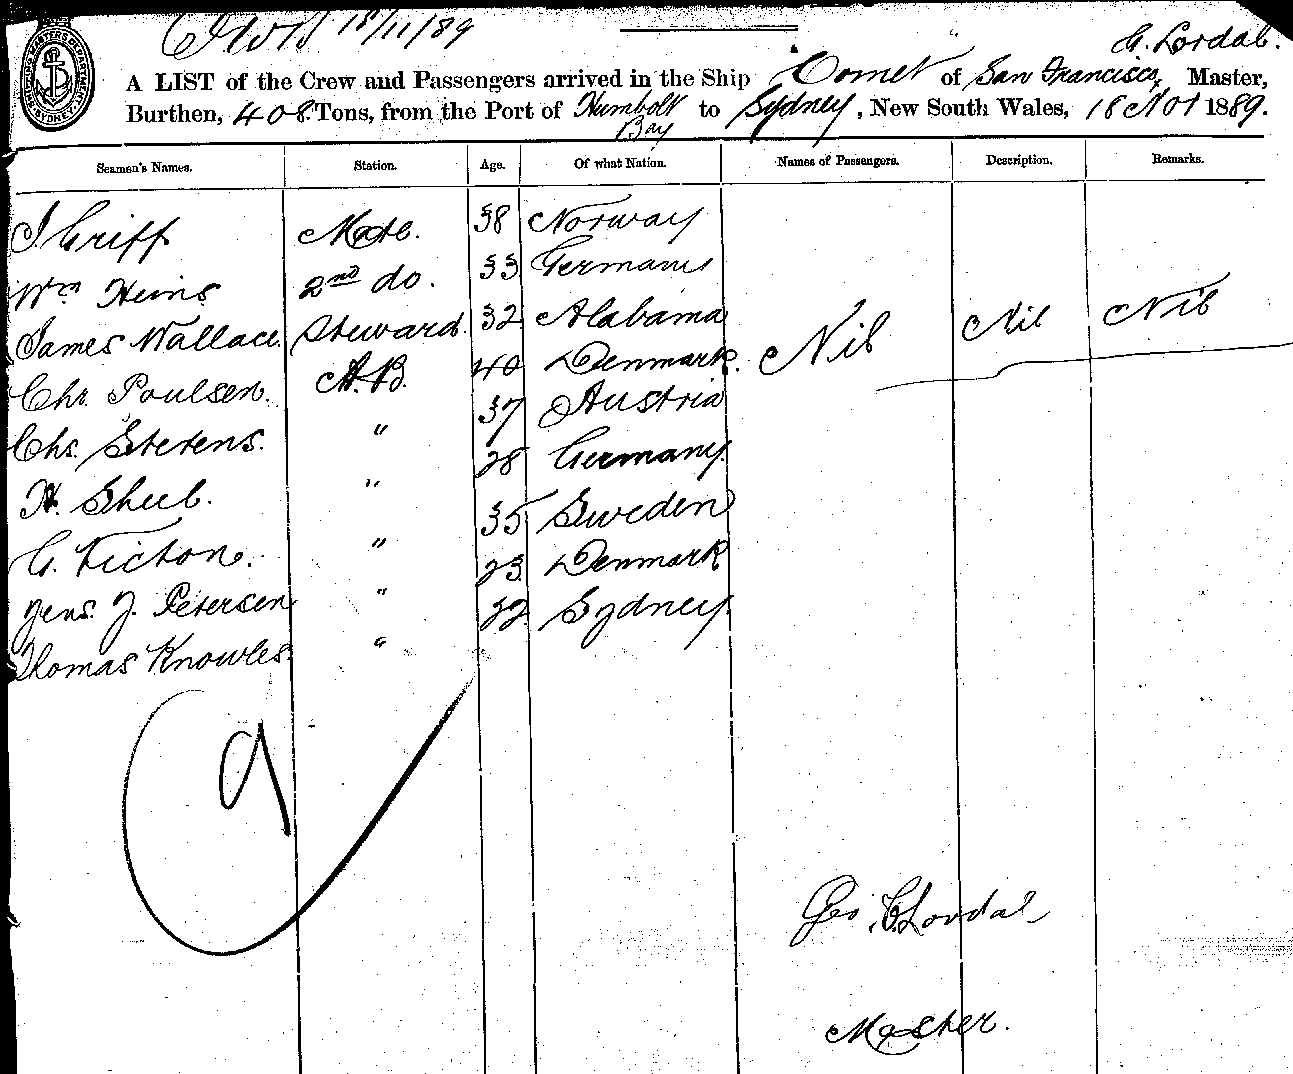 18/11/89
G. Lordal.
A LIST of the Crew and Passengers arrived in the Ship "Comet" of San Francisco, Master,
Burthen, 408 Tons, from the Port of Humbolt Bay to Sydney, New South Wales, 18 Nov 1889.
Seamen's Names. Station. Age. Of what Nation. Names of Passengers. Description. Remarks.
J Griff Mate. 38 Norway
Wm Heins 2nd do. 33 Germany
James Wallace. Steward. 32 Alabama Nil Nil Nil
Chr. Poulsen. A.B. 40 Denmark.
Chs. Stevens. " 37 Austria
H. " 28 Germany.
G. " 35 Sweden
Jens. J. Petersen " 23 Denmark
Thomas Knowles. " 22 Sydney.
9
Geo. C. Lordal
Master.